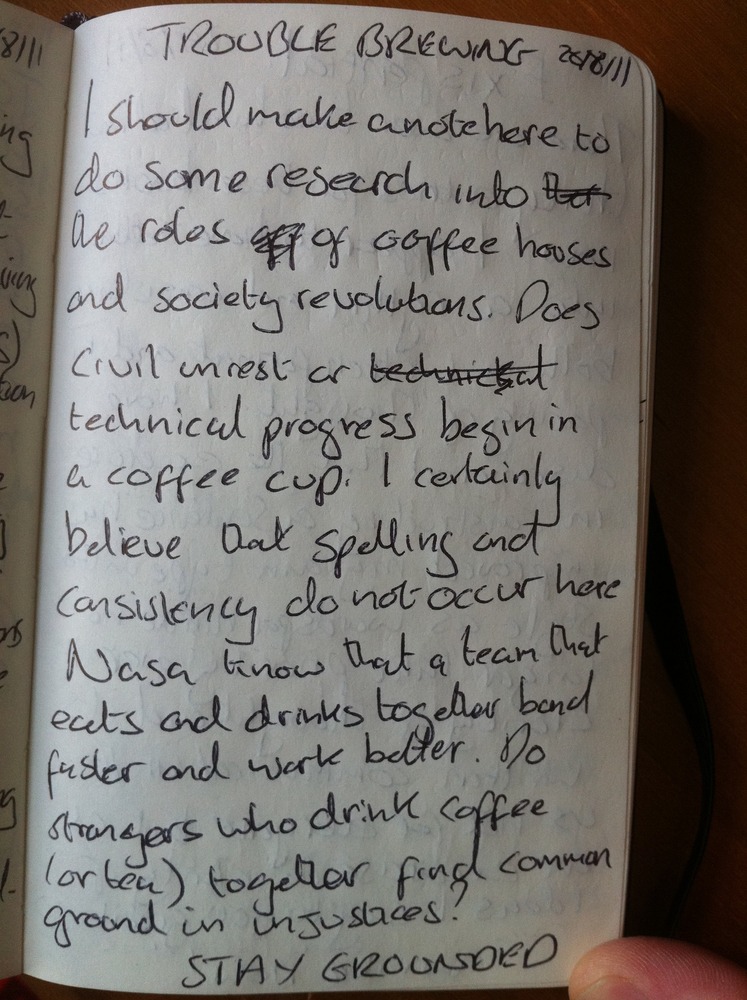 8/11
TROUBLE BREWING 20/8/11
I should make a note here to
do some research into
the roles of coffee houses
and society revolutions. Does
civil unrest or technical
technical progress begin in
a coffee cup. I certainly
believe that spelling and
consistency do not occur here
Nasa know that a team that
eats and drinks together bond
faster and work better. Do
strangers who drink coffee
(or tea) together find common
ground in injustices?
STAY GROUNDED